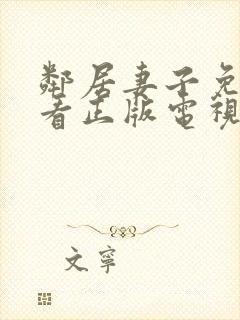 鄰居妻子免
看正版電視
文寧